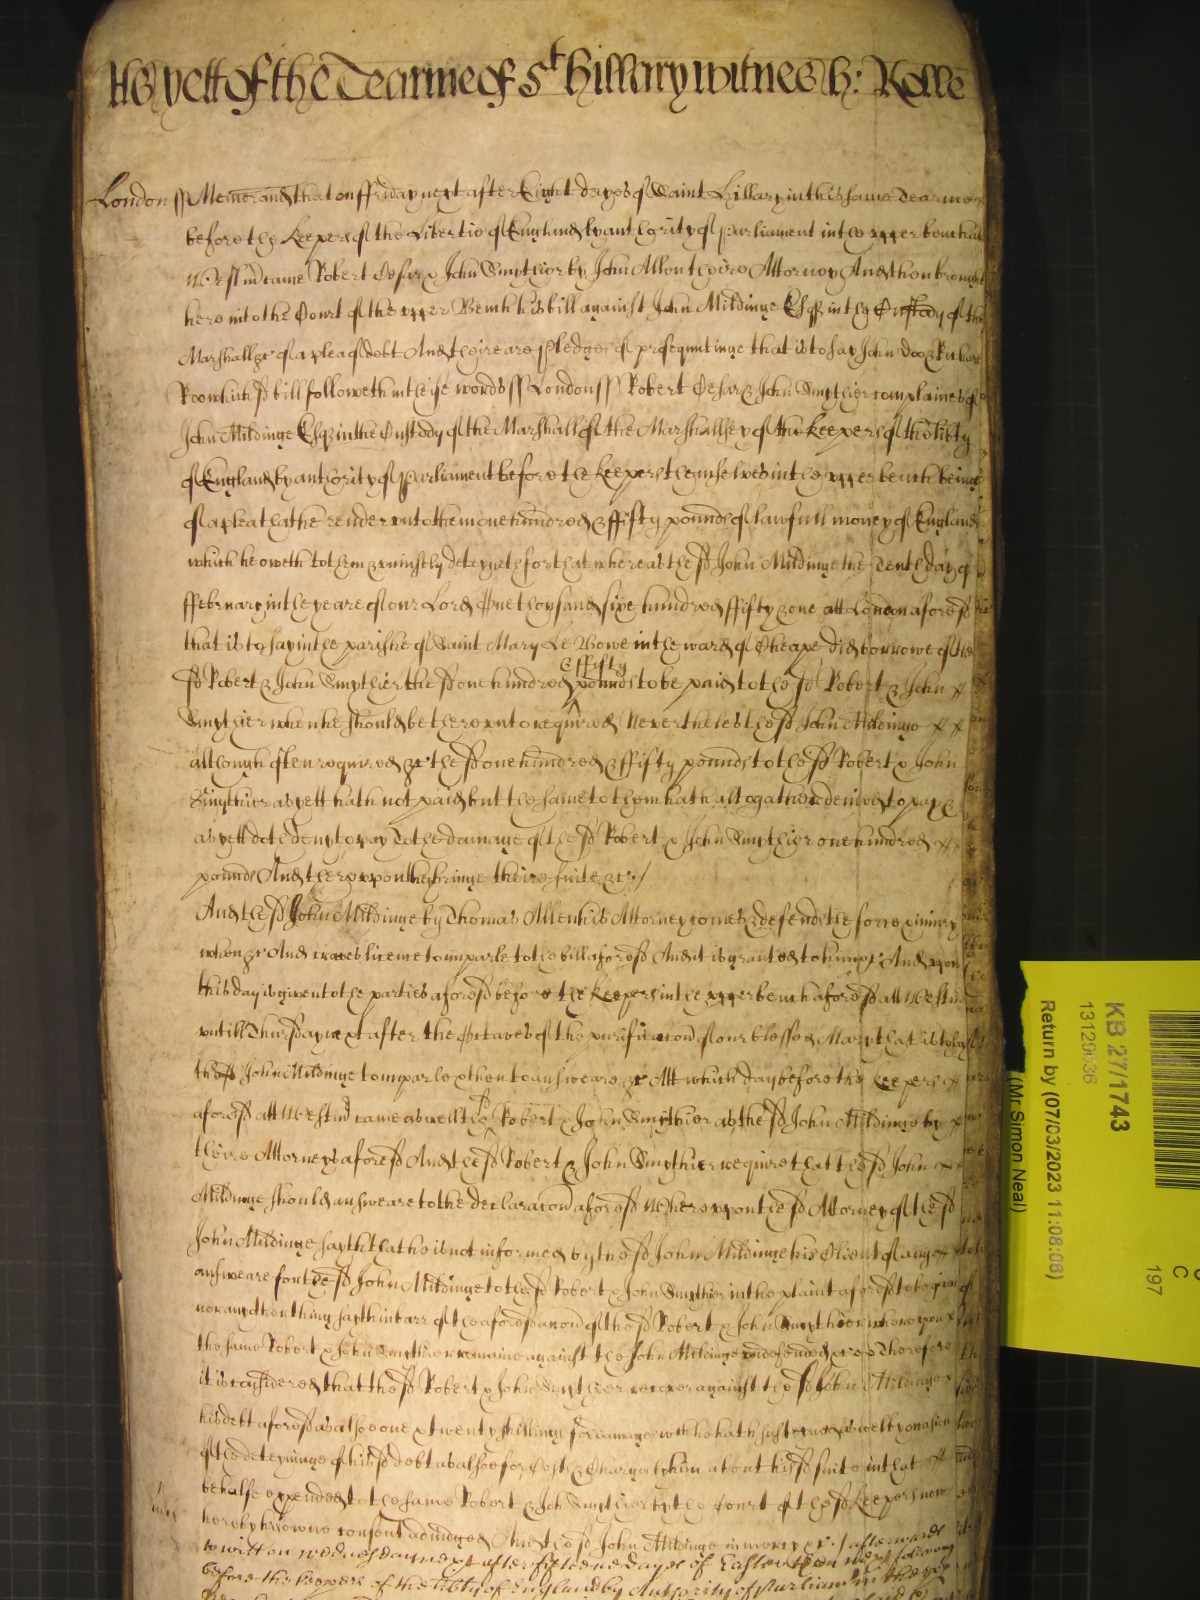 As yett of the Tearme of St Hillary witnes h: Rolle
London ss Memorand that on ffriday next after Eight dayes of Saint Hillary in this same Tearme
before the Keepers of the Libertie of England by authority of Parliament in the upper bench att
Westmd came Robert Cesar & John Smythier by John Allen theire Attorney And then brought
here into the Court of the upper Bench his bill against John Mildinge Esqr in the Custody of the
Marshall &c of a plea of debt And theire are pledges of prosequutinge that is to say John Doo & Richard
Roo which sd bill followeth in these words ss London ss Robert Cesar & John Smythier complaines of
John Mildinge Esqr in the Custody of the Marshall of the Marshallsey of the Keepers of the libty
of England by authority of Parliament before the Keepers themselves in the upper bench beinge
of a plea that he render unto them one hundred & ffifty pounds of lawfull money of England
which he oweth to them & uniustly deteyneth for that whereas the sd John Mildinge the Tenth day of
ffebruary in the yeare of our Lord One thousand sixe hundred ffifty & one att London aforesd
that is to say in the parishe of Saint Mary Le Bowe in the ward of Cheape did borrowe of the
& ffifty
sd Robert & John Smythier the sd one hundred pounds to be paid to the sd Robert & John
Smythier when he should be thereunto required Neverthelesse the sd John Mildinge
although often required &c the sd one hundred & ffifty pounds to the sd Robert & John
Smythier as yett hath not paid but the same to them hath altogather denied to pay &
as yett doth deny to pay To the damage of the sd Robert & John Smythier one hundred
pounds And thereupon they bringe theire suite &c
And the sd John Mildinge by Thomas Allen his Attorney comes & defends the force & iniury
when &c And craves licence to imparle to the bill aforesd And it is granted to him &c And upon
this day is given to the parties aforesd before the Keepers in the upper bench aforesd att Westmd
untill Thursday next after the Octaves of the purificacon of our blessed Mary that is to say
the sd John Mildinge to imparle & then to answeare &c Att which day before the Keepers
aforesd att Westmd came as well the sd Robert & John Smythier as the sd John Mildinge by
theire Attorneys aforesd And the sd Robert & John Smythier require that the sd John
Mildinge should answeare to the declaracon aforesd Whereupon the sd Attorney of the sd
John Mildinge sayth that he is not informed by the sd John Mildinge his Client of any
answeare for the sd John Mildinge to the sd Robert & John Smythier in the plaint aforesd to be given
nor any other thing sayth in barr of the aforesd accon of the sd Robert & John Smythier whereupon
the same Robert & John Smythier remaine against the John Mildinge undefended &c Therefore
it is considered that the sd Robert & John Smythier recover against the sd John Mildinge
his debt aforesd as alsoe one & twenty shillings for damages wch he hath susteyned as well by occasion
of the deteyninge of his sd debt as alsoe for Costs & Charges by him about his sd suite in that
behalfe expended to the same Robert & John Smythier by the Court of the sd Keepers now
here by his owne consent adiudged And the sd John Mildinge in mercy &c afterwards
to witt on wednesday next after fifteene dayes of Easter then next following
before the keepers of the libty of England by Authority of Parliamt in the upp
KB 27/1743
13129636
Return by (07/03/2023 11:08:06)
(Mr Simon Neal)
197
C